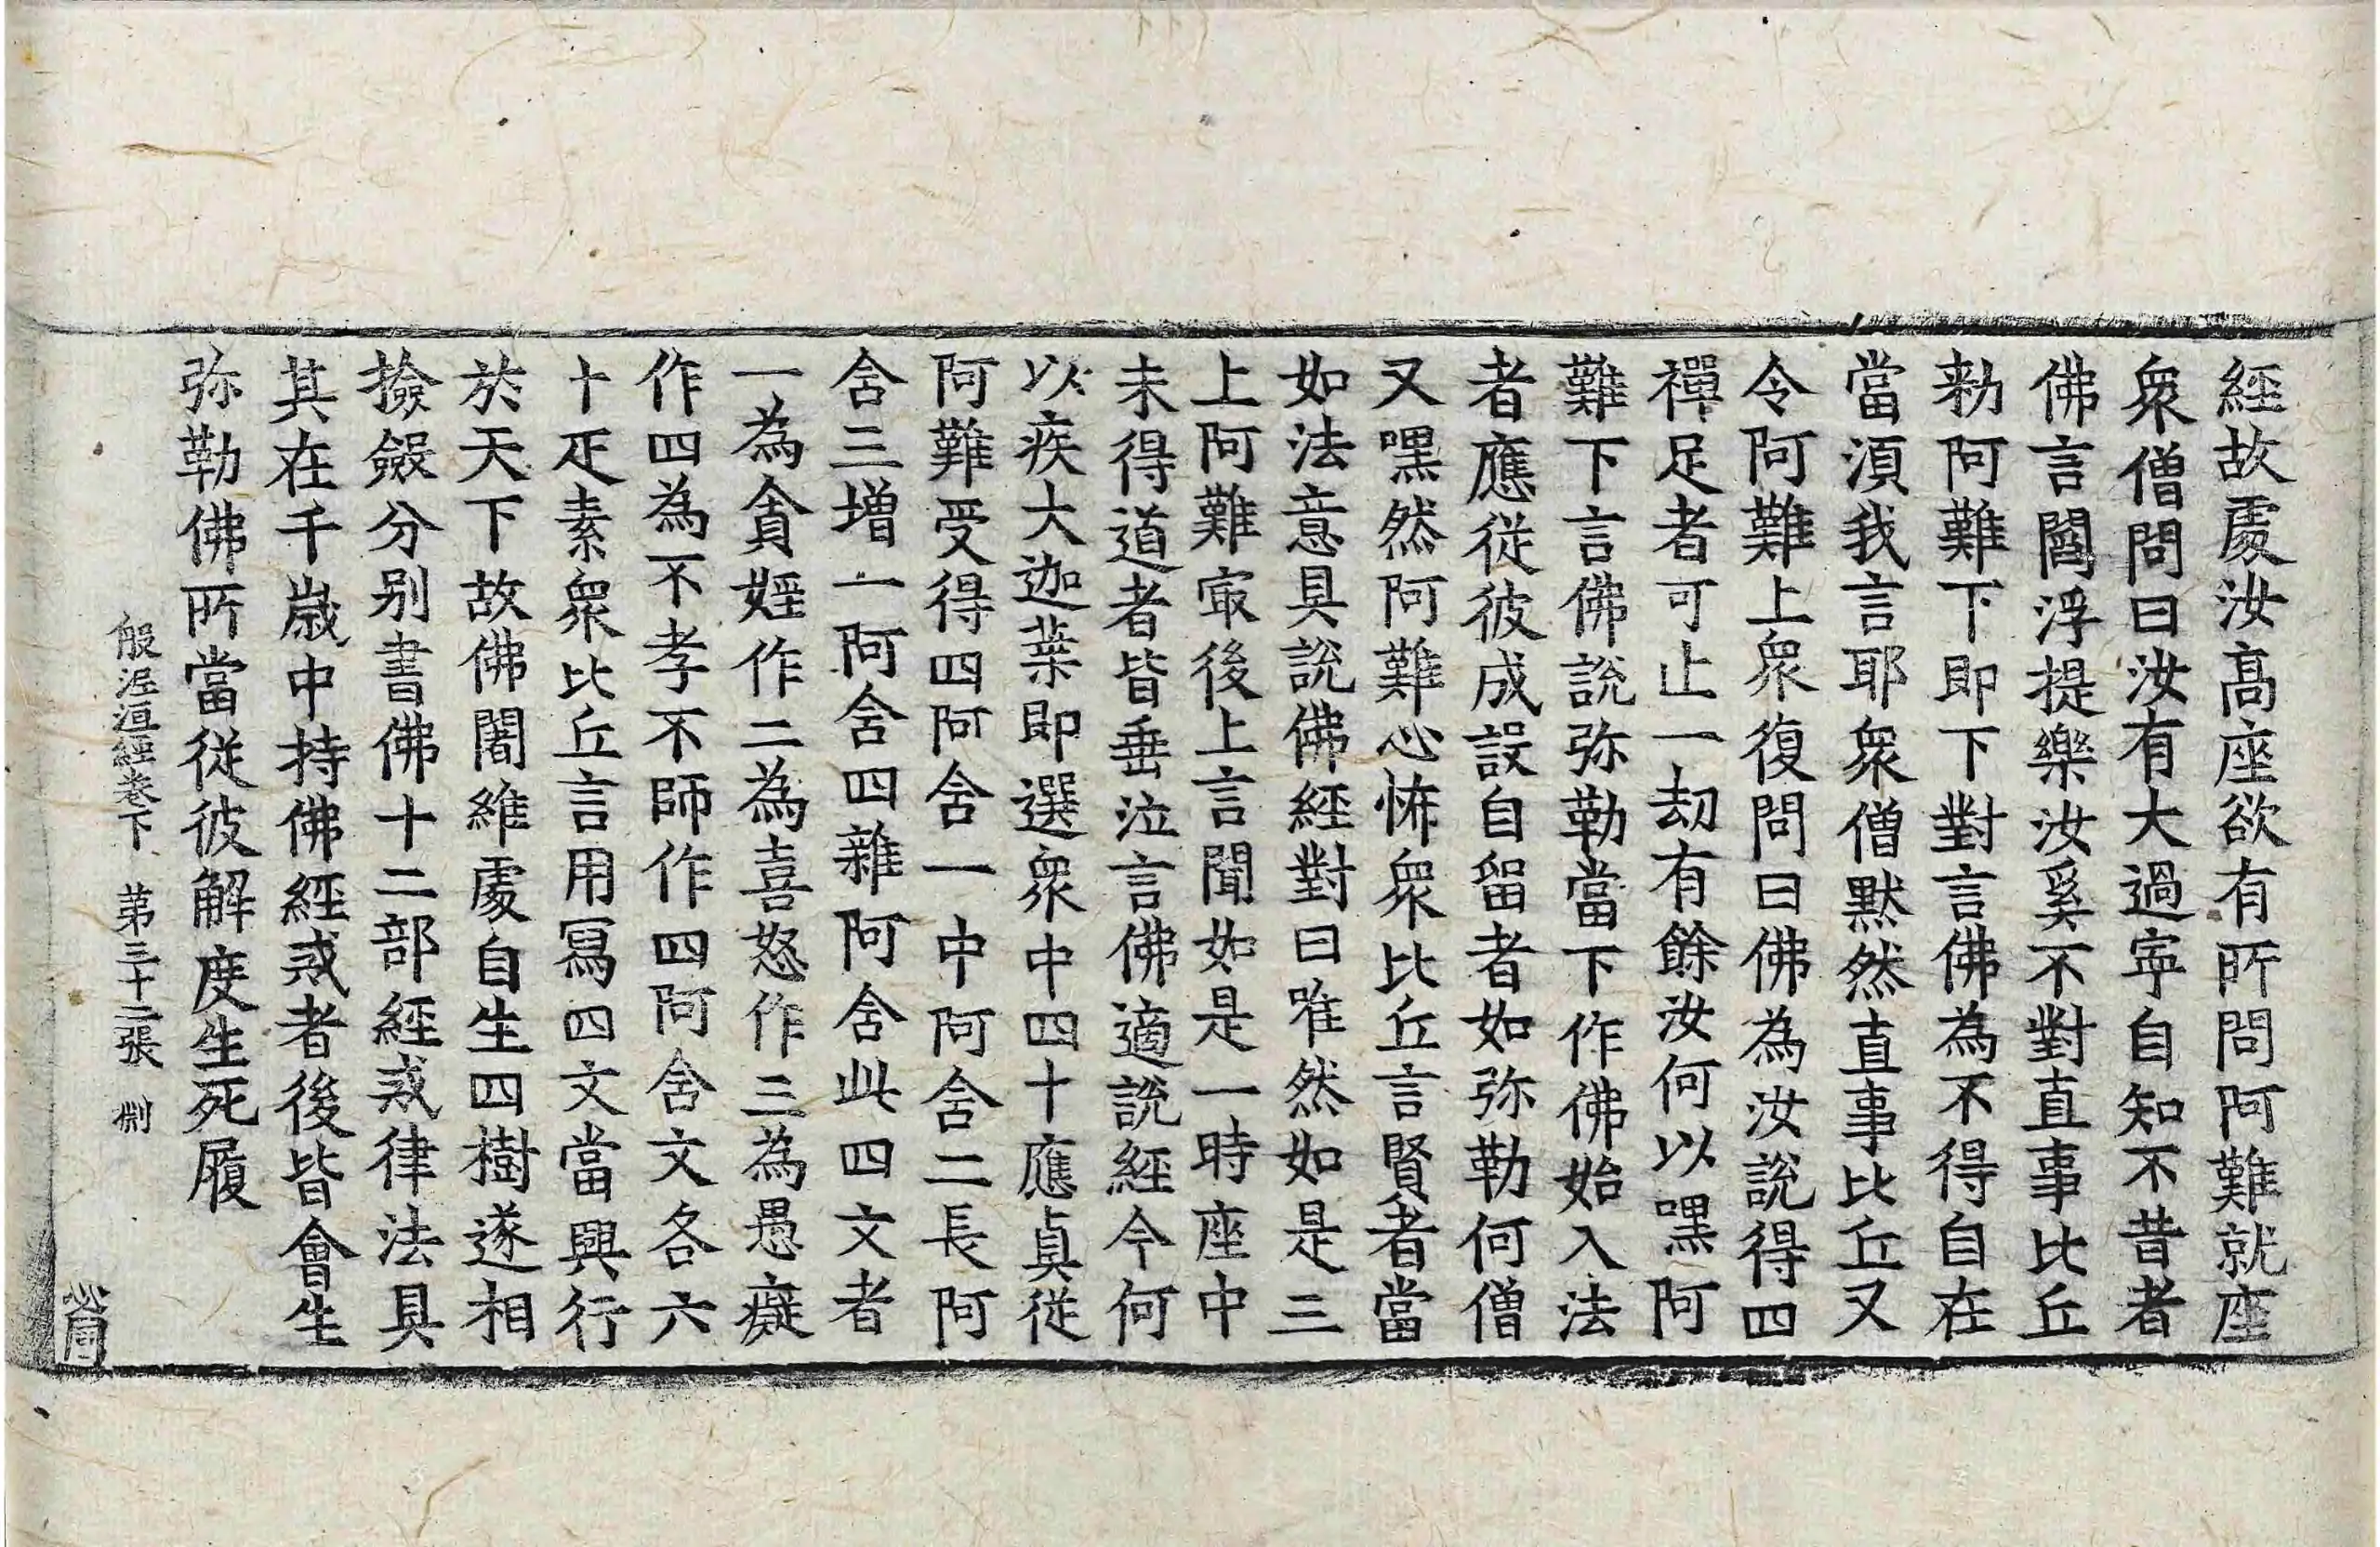 經故處汝髙座欲有所問阿難就座
衆僧問曰汝有大過寧自知不昔者
佛言閻浮提樂汝奚不對直事比丘
勑阿難下即下對言佛為不得自在
當湏我言耶衆僧默然直事比丘又
令阿難上衆復問曰佛為汝說得四
禪足者可止一刧有餘汝何以嘿阿
難下言佛說弥勒當下作佛始入法
者應從彼成設自留者如弥勒何僧
又嘿然阿難心怖衆比丘言賢者當
如法意具說佛經對曰唯然如是三
上阿難㝡後上言聞如是一時座中
未得道者皆垂泣言佛適說經今何
以疾大迦葉即選衆中四十應真從
阿難受得四阿舍一中阿舍二長阿
舍三增一阿舍四雜阿舍此四文者
一為貪婬作二為喜怒作三為愚癡
作四為不孝不師作四阿舍文各六
十疋素衆比丘言用寫四文當興行
於天下故佛闍維處自生四樹遂相
撿斂分別書佛十二部經戒律法具
其在千歲中持佛經戒者後皆會生
弥勒佛所當從彼解度生死履
般泥洹經卷下 第三十二張 㓨